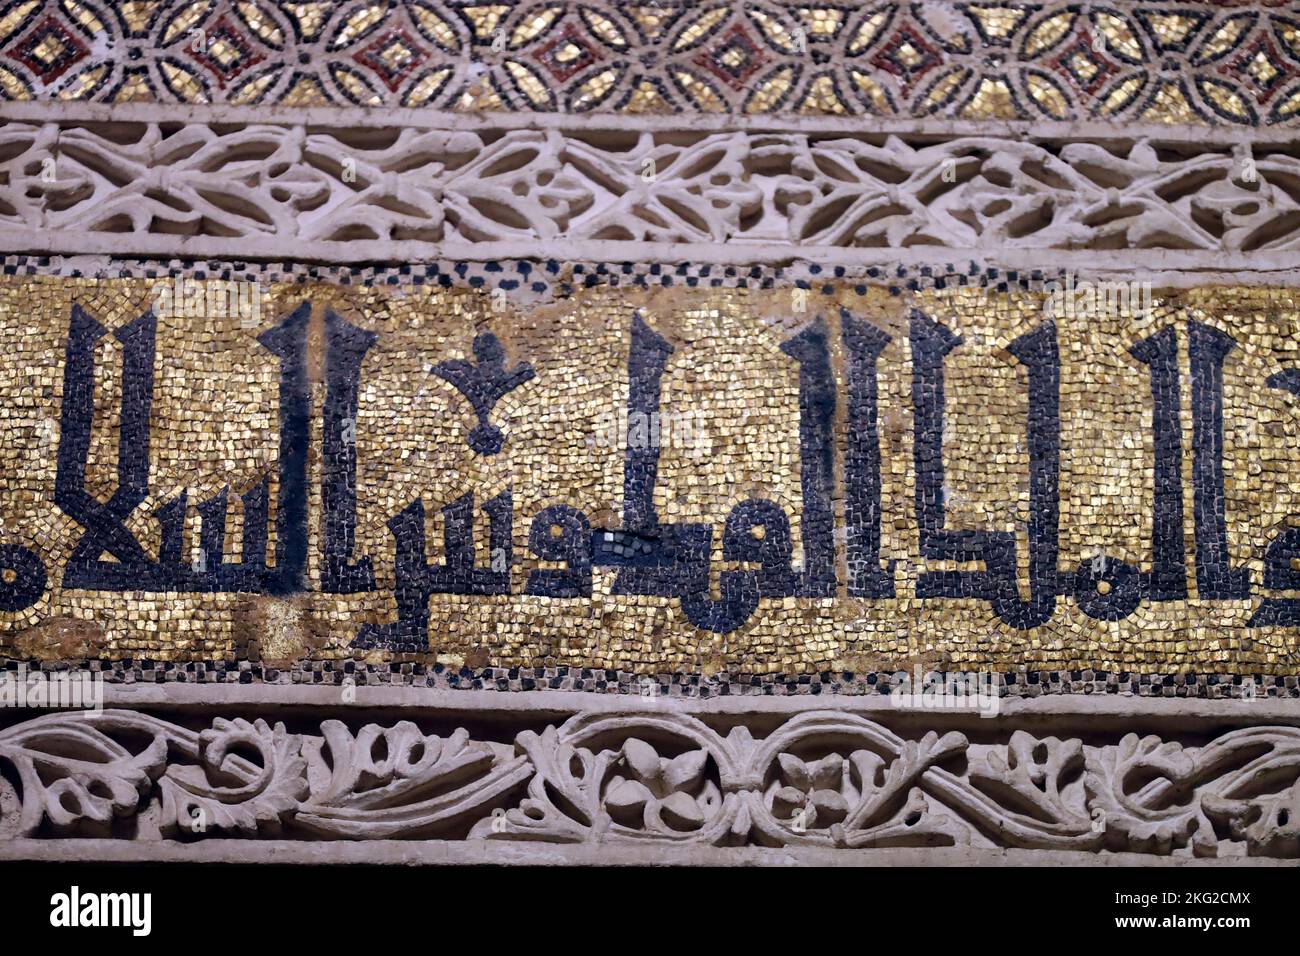 الملك القدوس السلام
a alamy
Image ID: 2KG2CMX
www.alamy.com